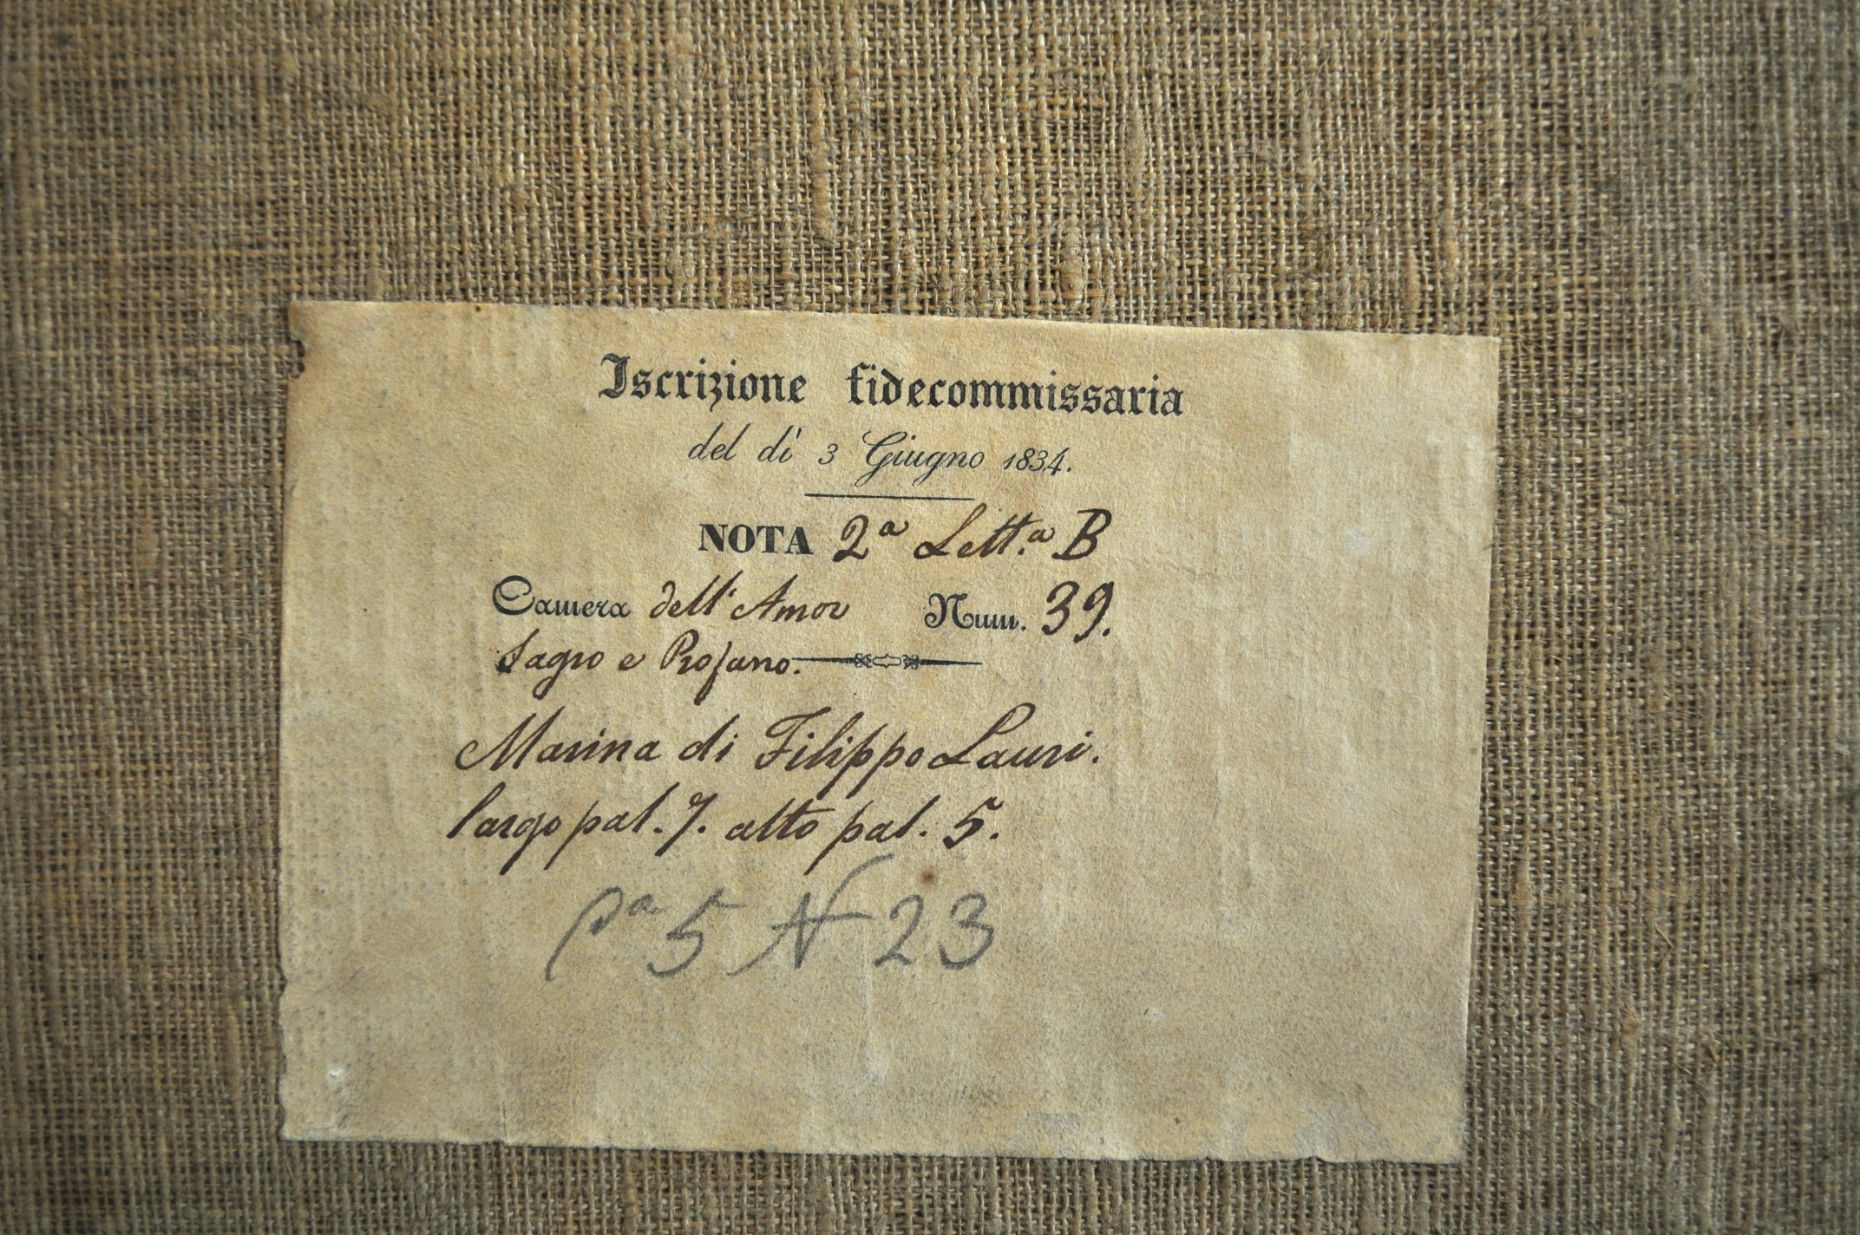 Iscrizione fidecommissaria
del dì 3 Giugno 1834.
NOTA 2ª Lett.ª B
Camera dell'Amor Num. 39.
Sagro e Profano.
Marina di Filippo Lauri.
largo pal. 7. alto pal. 5.
Pª 5 N 23